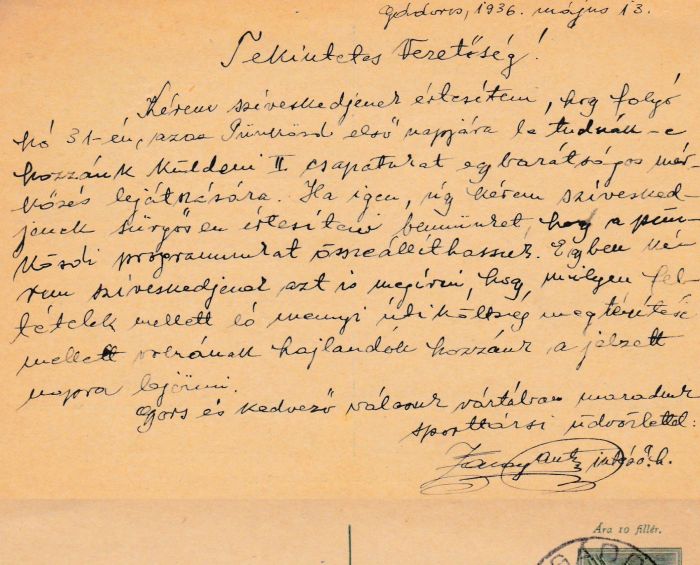 Gádoros, 1936. május 13.
Tekintetes Vezetőség!
Kérem sziveskedjenek értesiteni, hogy folyó
hó 31-én, azaz Pünkösd első napjára le tudnák-e
hozzánk küldeni II. csapatukat egy barátságos mér-
kőzés lejátszására. Ha igen, úgy kérem szivesked-
jenek sürgősen értesiteni bennünket, hogy a pün-
kösdi programmunkat összeállithassuk. Egyben ké-
rem sziveskedjenek azt is megirni, hogy milyen fel-
tételek mellett és mennyi útiköltség megtéritése
mellett volnának hajlandók hozzánk a jelzett
napra lejönni.
Gyors és kedvező válaszuk vártában maradunk
sporttársi üdvözlettel:
intéző h.
Ára 10 fillér.
GÁDO